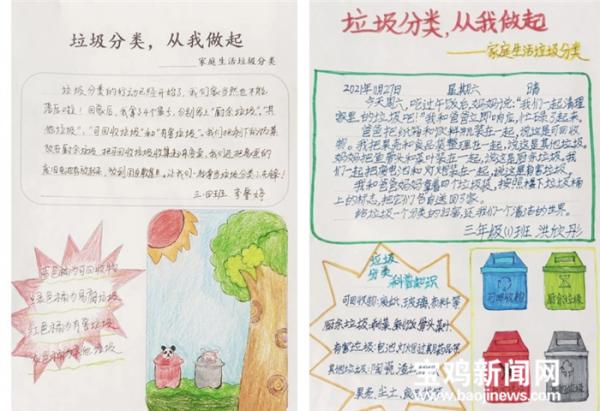 垃圾分类，从我做起
——家庭生活垃圾分类
垃圾分类的行动已经开始了，我们家当然也不能
落后啦！回家后，我拿
"可回收垃圾"和"有害垃圾"。我们把剩下的饭菜
放在厨余垃圾，把可回收垃圾收集起来
让我们一起
三.四班
蓝色桶为可回收物
绿色桶为厨余垃圾
红色桶为有害垃圾
灰色桶为其他垃圾
垃圾分类，从我做起
——家庭生活垃圾分类
2021年11月27日 星期六 晴
今天周六，吃过午饭后妈妈说："我们一起清理
家里的垃圾吧！"我和爸爸立即响应，忙碌了起来。
爸爸把纸箱和饮料瓶装在一起，说这是可回收
物。我把果壳和食品袋整理在一起，说这是其他垃圾。
妈妈把鱼骨头和菜叶装在一起，说这是厨余垃圾。我
们一起把废电池和灯泡装在一起，说是有害垃圾。
我和爸爸妈妈拿着四个垃圾袋，按照楼下垃圾桶
上的标志，把它们各自送回了家。
给垃圾一个分类的归宿，还我们一个清洁的世界。
三年级(1)班 洪欣彤
垃圾
分类
科普知识
可回收物：废纸、玻璃、布料等
厨余垃圾：剩菜剩饭骨头菜叶
有害垃圾：电池灯泡过期药品等
其他垃圾：陶瓷、渣土
果壳、尘土、食品袋
可回收物
厨余垃圾
宝鸡新闻网
www.baojinews.com